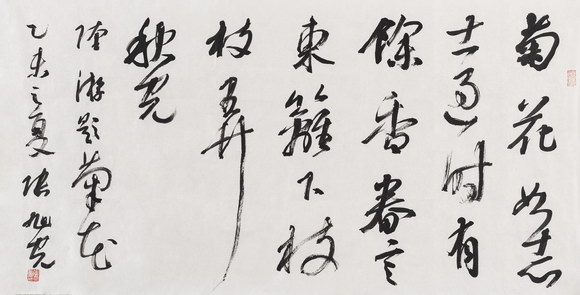 菊花如志
士過时有
餘香眷言
東籬下数
枝弄
秋光
陸游题菊花
乙未之夏 張旭光